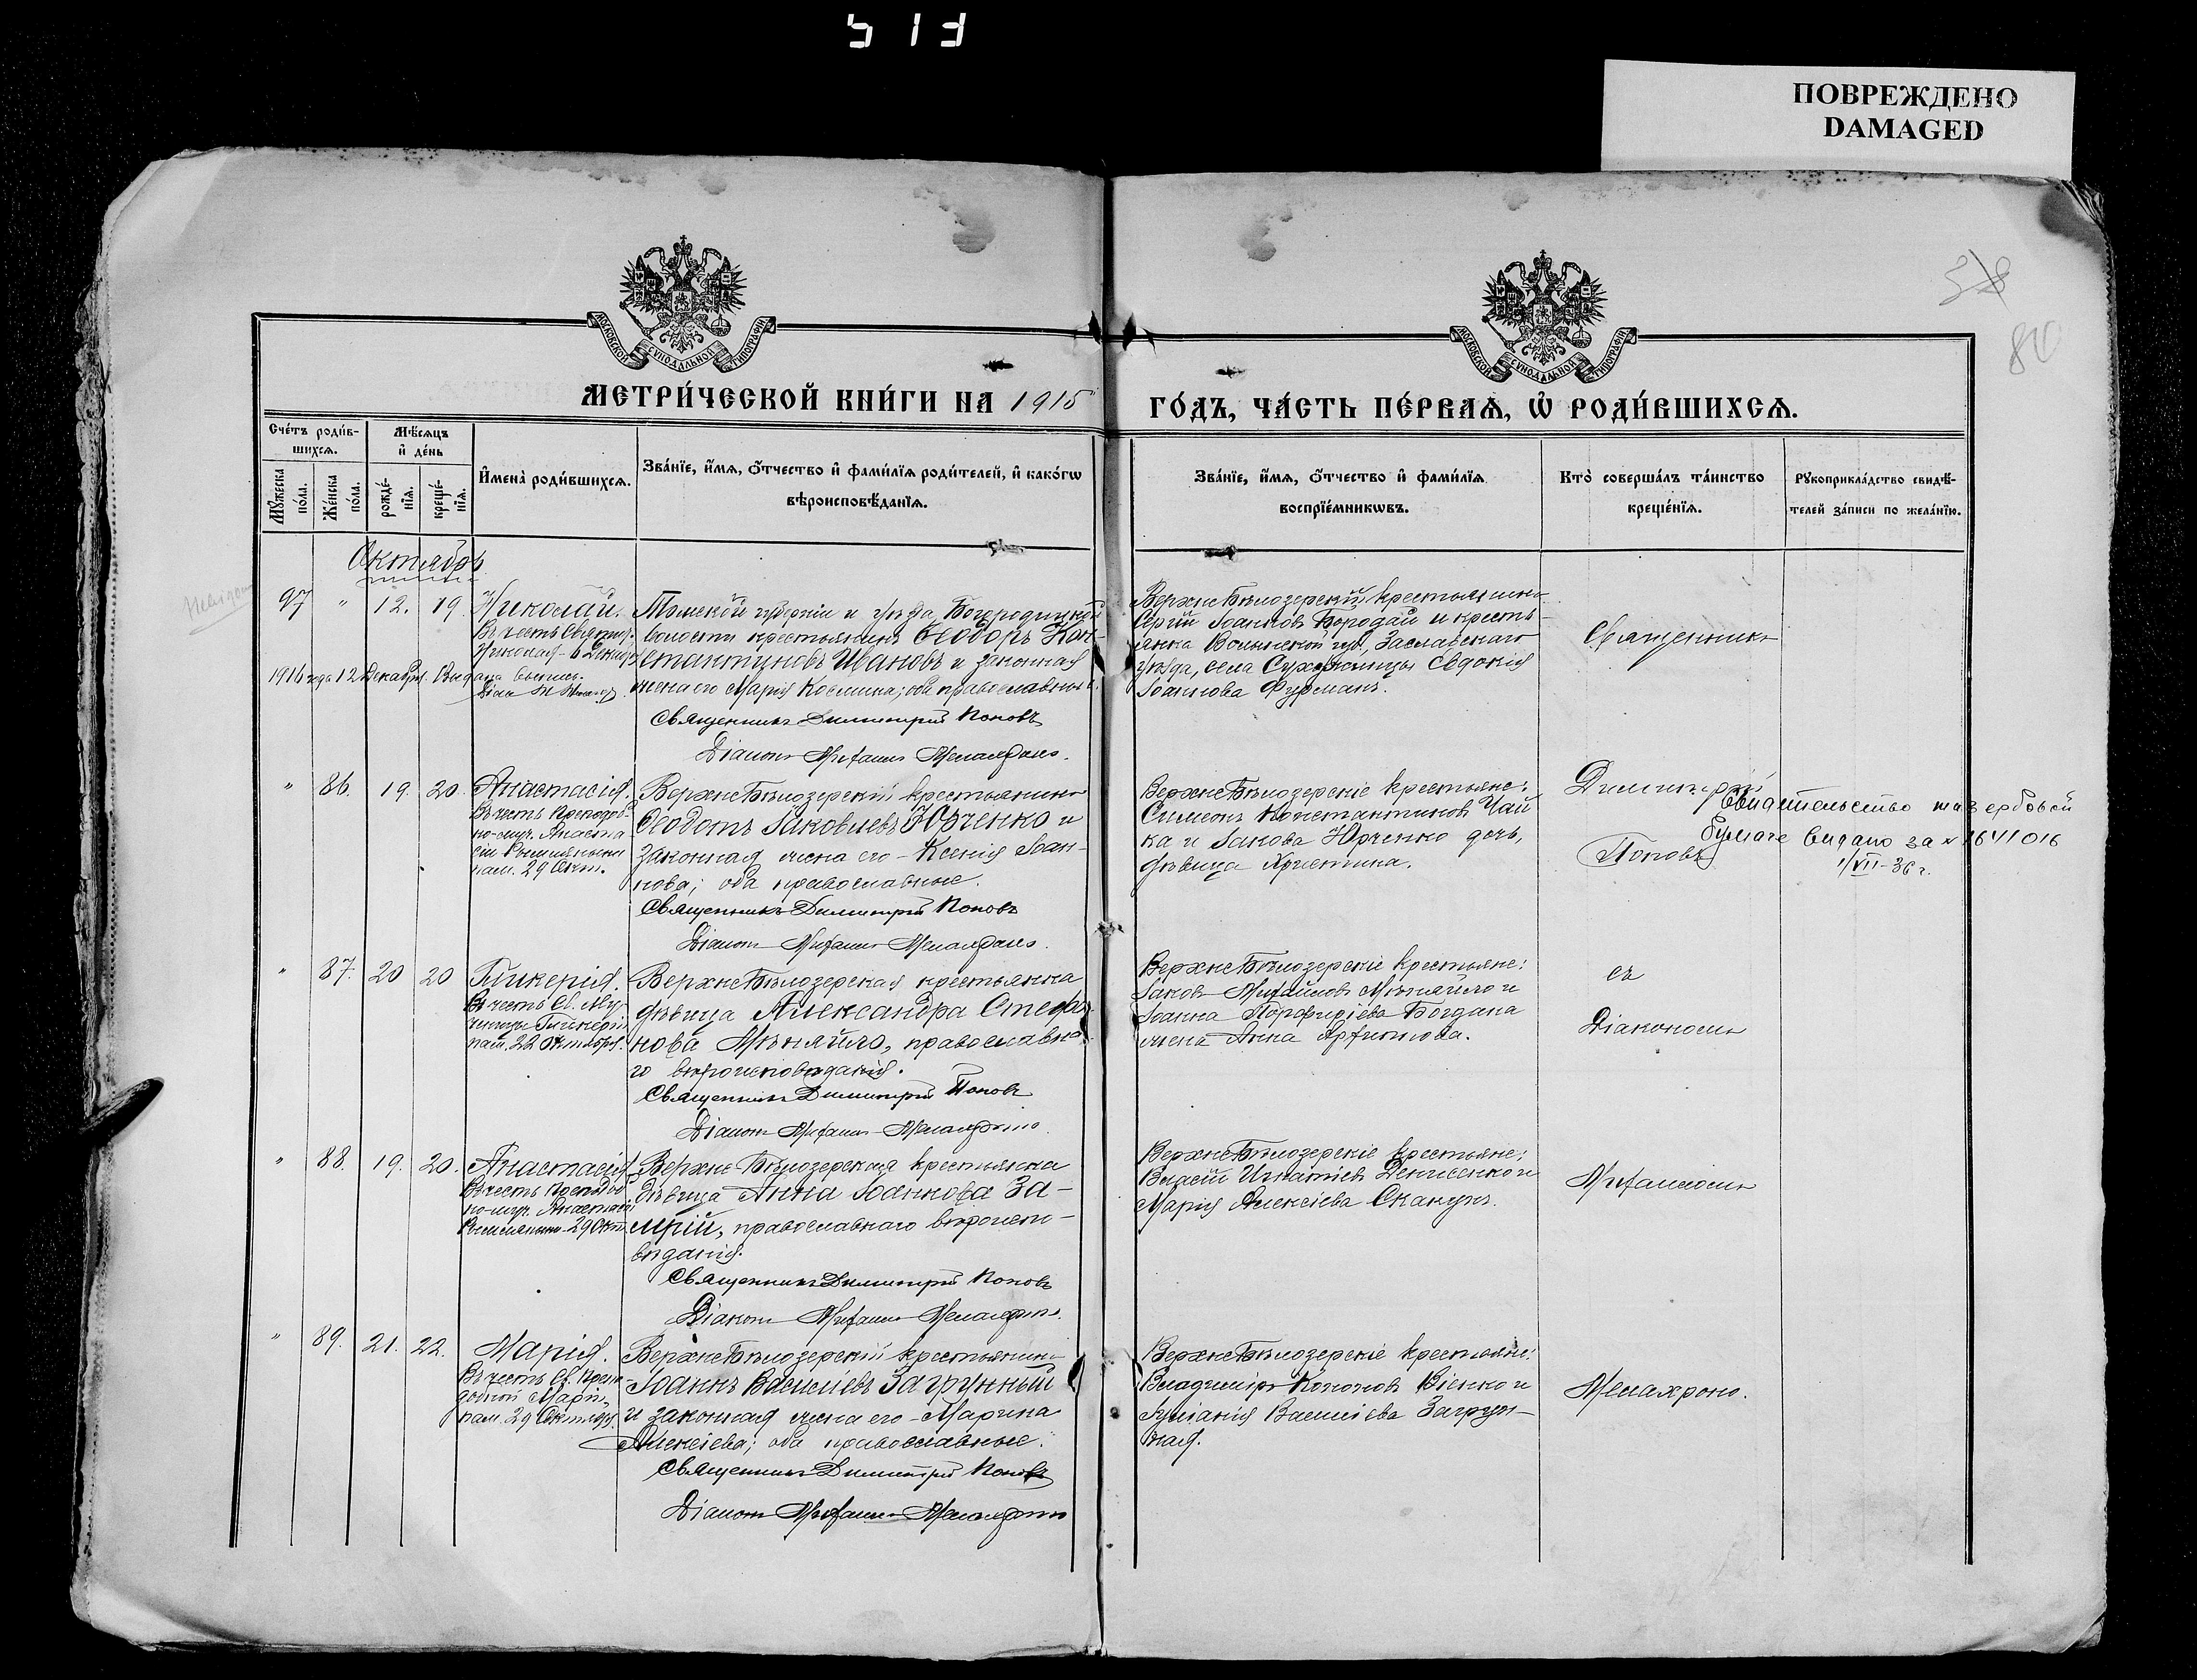 513
ПОВРЕЖДЕНО
DAMAGED
МОСКОВСКОЙ СѴНОДАЛЬНОЙ ТИПОГРАФІИ
МОСКОВСКОЙ СѴНОДАЛЬНОЙ ТИПОГРАФІИ
МЕТРИ́ЧЕСКОЙ КНИ́ГИ НА 1915
ГО́ДЪ, ЧА́СТЬ ПЕ́РВАѦ, Ѡ҆ РОДИ́ВШИХСѦ.
Сче́тъ роди́в-
шихсѧ.
Мꙋ́жеска по́ла.
Же́нска по́ла.
Мѣ́сѧцъ
и҆ де́нь
рожде́-нїѧ.
креще́-нїѧ.
И҆мена̀ роди́вшихсѧ.
Зва́нїе, и҆́мѧ, ѻ҆́тчество и҆ фами́лїѧ роди́телей, и҆ како́гѡ
вѣроисповѣ́данїѧ.
Зва́нїе, и҆́мѧ, ѻ҆́тчество и҆ фами́лїѧ
воспрїе́мникѡвъ.
Кто̀ соверша́лъ та́инство
креще́нїѧ.
Рꙋкоприкла́дство свидѣ́-
телей за́писи по жела́нїю.
Октябрь
97 " 12. 19. Николай.
Въ честь Святит.
Николая - 6 Декабр
1916 года 12 Декабря. Выдана выпись.
Томской губерніи и уѣзда, Богородицкой
волости крестьянинъ Ѳеодоръ Кон-
стантиновъ Ивановъ и законная
жена его Марія Космина; оба православные.
Священникъ Димитрій Поповъ
Діаконъ
Верхне Бѣлозерскій крестьянинъ
Сергій Іоанновъ Бородай и кресть-
янка Волынской губ., Заславскаго
уѣзда, села Евдокія
Іоаннова Фурманъ.
Священникъ
" 86. 19. 20. Анастасія.
Въ честь Преподоб-
но-муч. Анаста
сіи Римляныни
пам. 29 Окт.
Верхне Бѣлозерскій крестьянинъ
Ѳеодотъ Іаковлевъ Юрченко и
законная жена его - Ксенія Іоан-
нова; оба православные.
Священникъ Димитрій Поповъ
Діаконъ
Верхне Бѣлозерскіе крестьяне:
Симеонъ Константиновъ Чай
ка и Іакова Юрченко дочь,
дѣвица Христина.
Димитрій
Поповъ
Свидетельство на гербовой
бумаге видано за № 1641016
1/VII-36 г.
" 87. 20 20 Гликерія.
Въ честь Св. Му-
ченицы Гликеріи
пам. 22 Октября.
Верхне Бѣлозерская крестьянка
дѣвица Александра Стефа
нова Мѣняйло, православна
го вѣроисповѣданія.
Священникъ Димитрій Поповъ
Діаконъ
Верхне Бѣлозерскіе крестьяне:
Іаковъ Михайловъ Мѣняйло и
Іоанна Порфиріева Богдана
жена Анна
съ
Діакономъ
" 88. 19. 20. Анастасія
Въ честь Преподоб
но-муч. Анастасіи
Римляныни - 29 Окт.
Верхне Бѣлозерская крестьянка
дѣвица Анна Іоаннова За-
мрій, православнаго вѣроиспо-
вѣданія.
Священникъ Димитрій Поповъ
Діаконъ
Верхне Бѣлозерскіе крестьяне:
Власій Игнатіевъ Денисенко и
Марія Алексіева Скакунъ.
" 89. 21. 22. Марія.
Въ честь Св. Препо
добной Маріи,
пам. 29 Октября.
Верхне Бѣлозерскій крестьянинъ
Іоаннъ Василіевъ Загрунный
и законная жена его - Марина
Алексіева; оба православные.
Священникъ Димитрій Поповъ
Діаконъ
Верхне Бѣлозерскіе крестьяне:
Владиміръ Кононовъ Біенко и
Іуліанія Василіева Загрун-
ная.